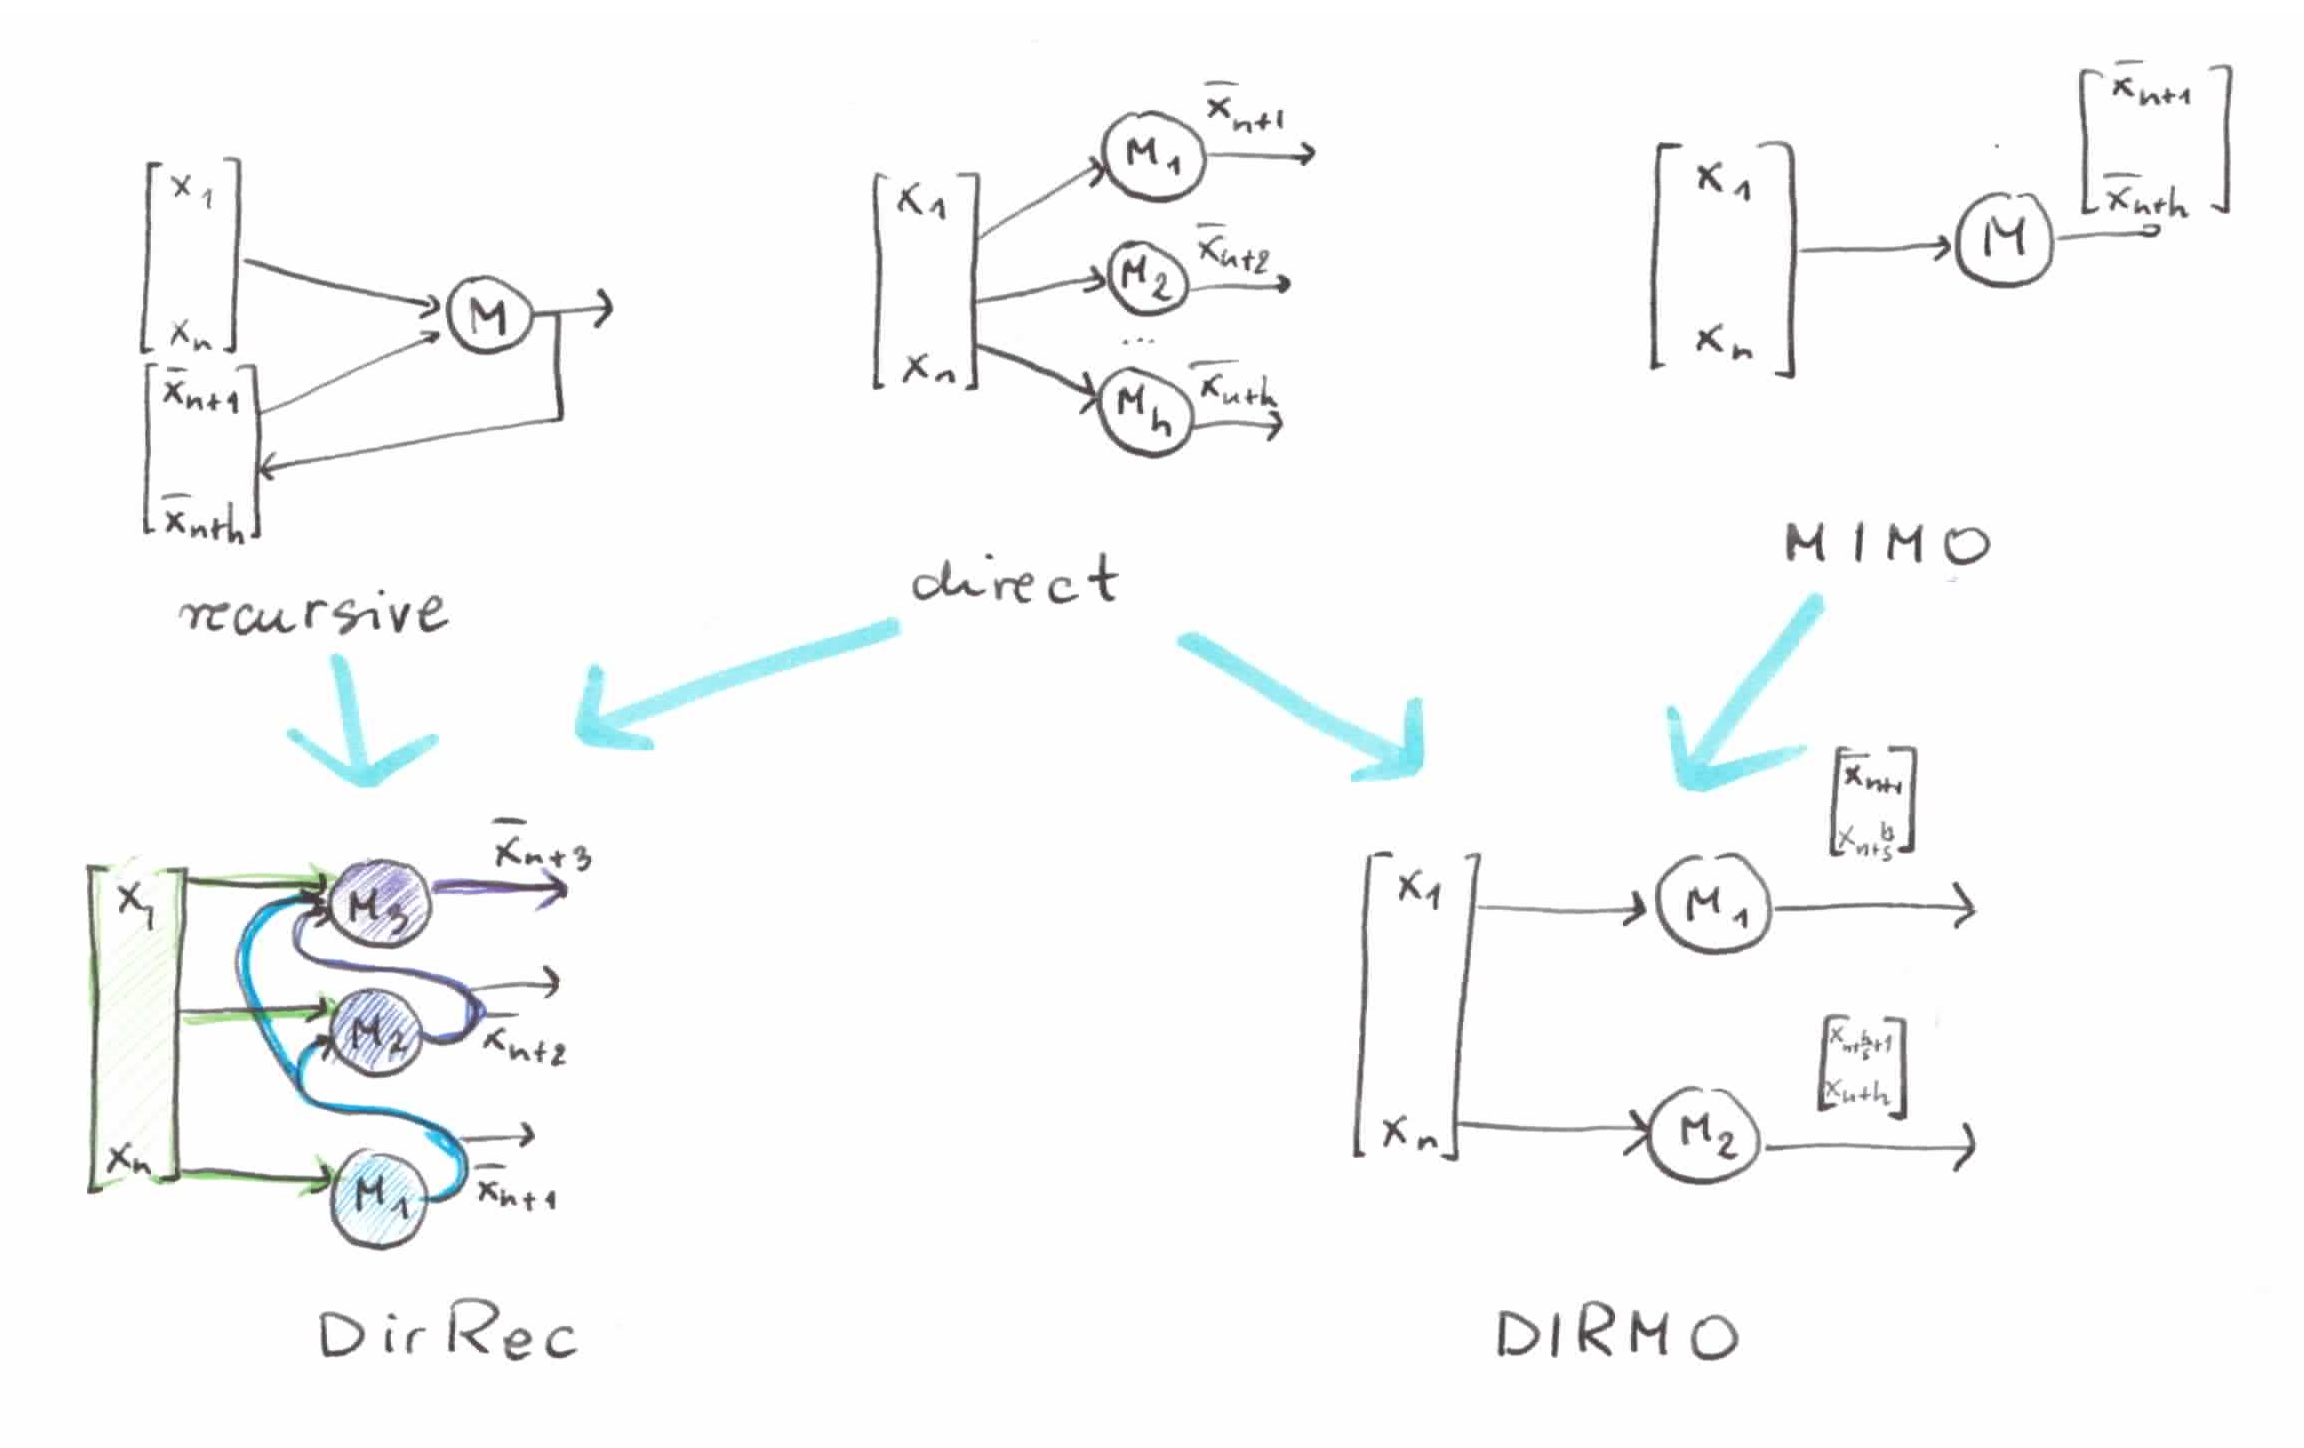 x₁
xₙ
x̄ₙ₊₁
x̄ₙ₊ₕ
M
recursive
x₁
xₙ
M₁
x̄ₙ₊₁
M₂
x̄ₙ₊₂
...
Mₕ
x̄ₙ₊ₕ
direct
x₁
xₙ
M
x̄ₙ₊₁
x̄ₙ₊ₕ
MIMO
x₁
xₙ
M₃
x̄ₙ₊₃
M₂
x̄ₙ₊₂
M₁
x̄ₙ₊₁
DirRec
x₁
xₙ
M₁
x̄ₙ₊₁
M₂
xₙ₊ₕ
DIRMO